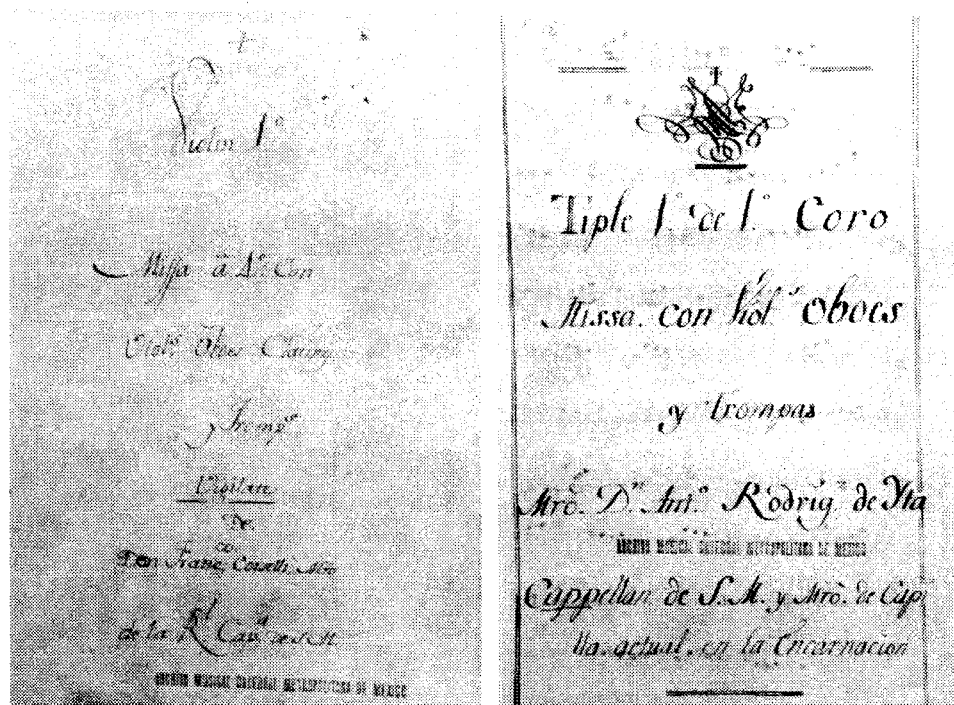 Violin 1.º
Missa â 4.º Con
Viol.s Oboes Clarin.s
y Tromp.s
Vigilate
De
Don Fran.co Corselli, Mro
de la R.l Cap.a de S. M.
ARCHIVO MUSICAL CATEDRAL METROPOLITANA DE MEXICO
Tiple 1.º de 1.º Coro
Missa. con Viol.s oboes
y trompas
Mrõ. D.n Ant.º Rodrig.z de Yta
ARCHIVO MUSICAL CATEDRAL METROPOLITANA DE MEXICO
Cappellan de S. M. y Mrõ. de Cap
lla. actual. en la Encarnacion